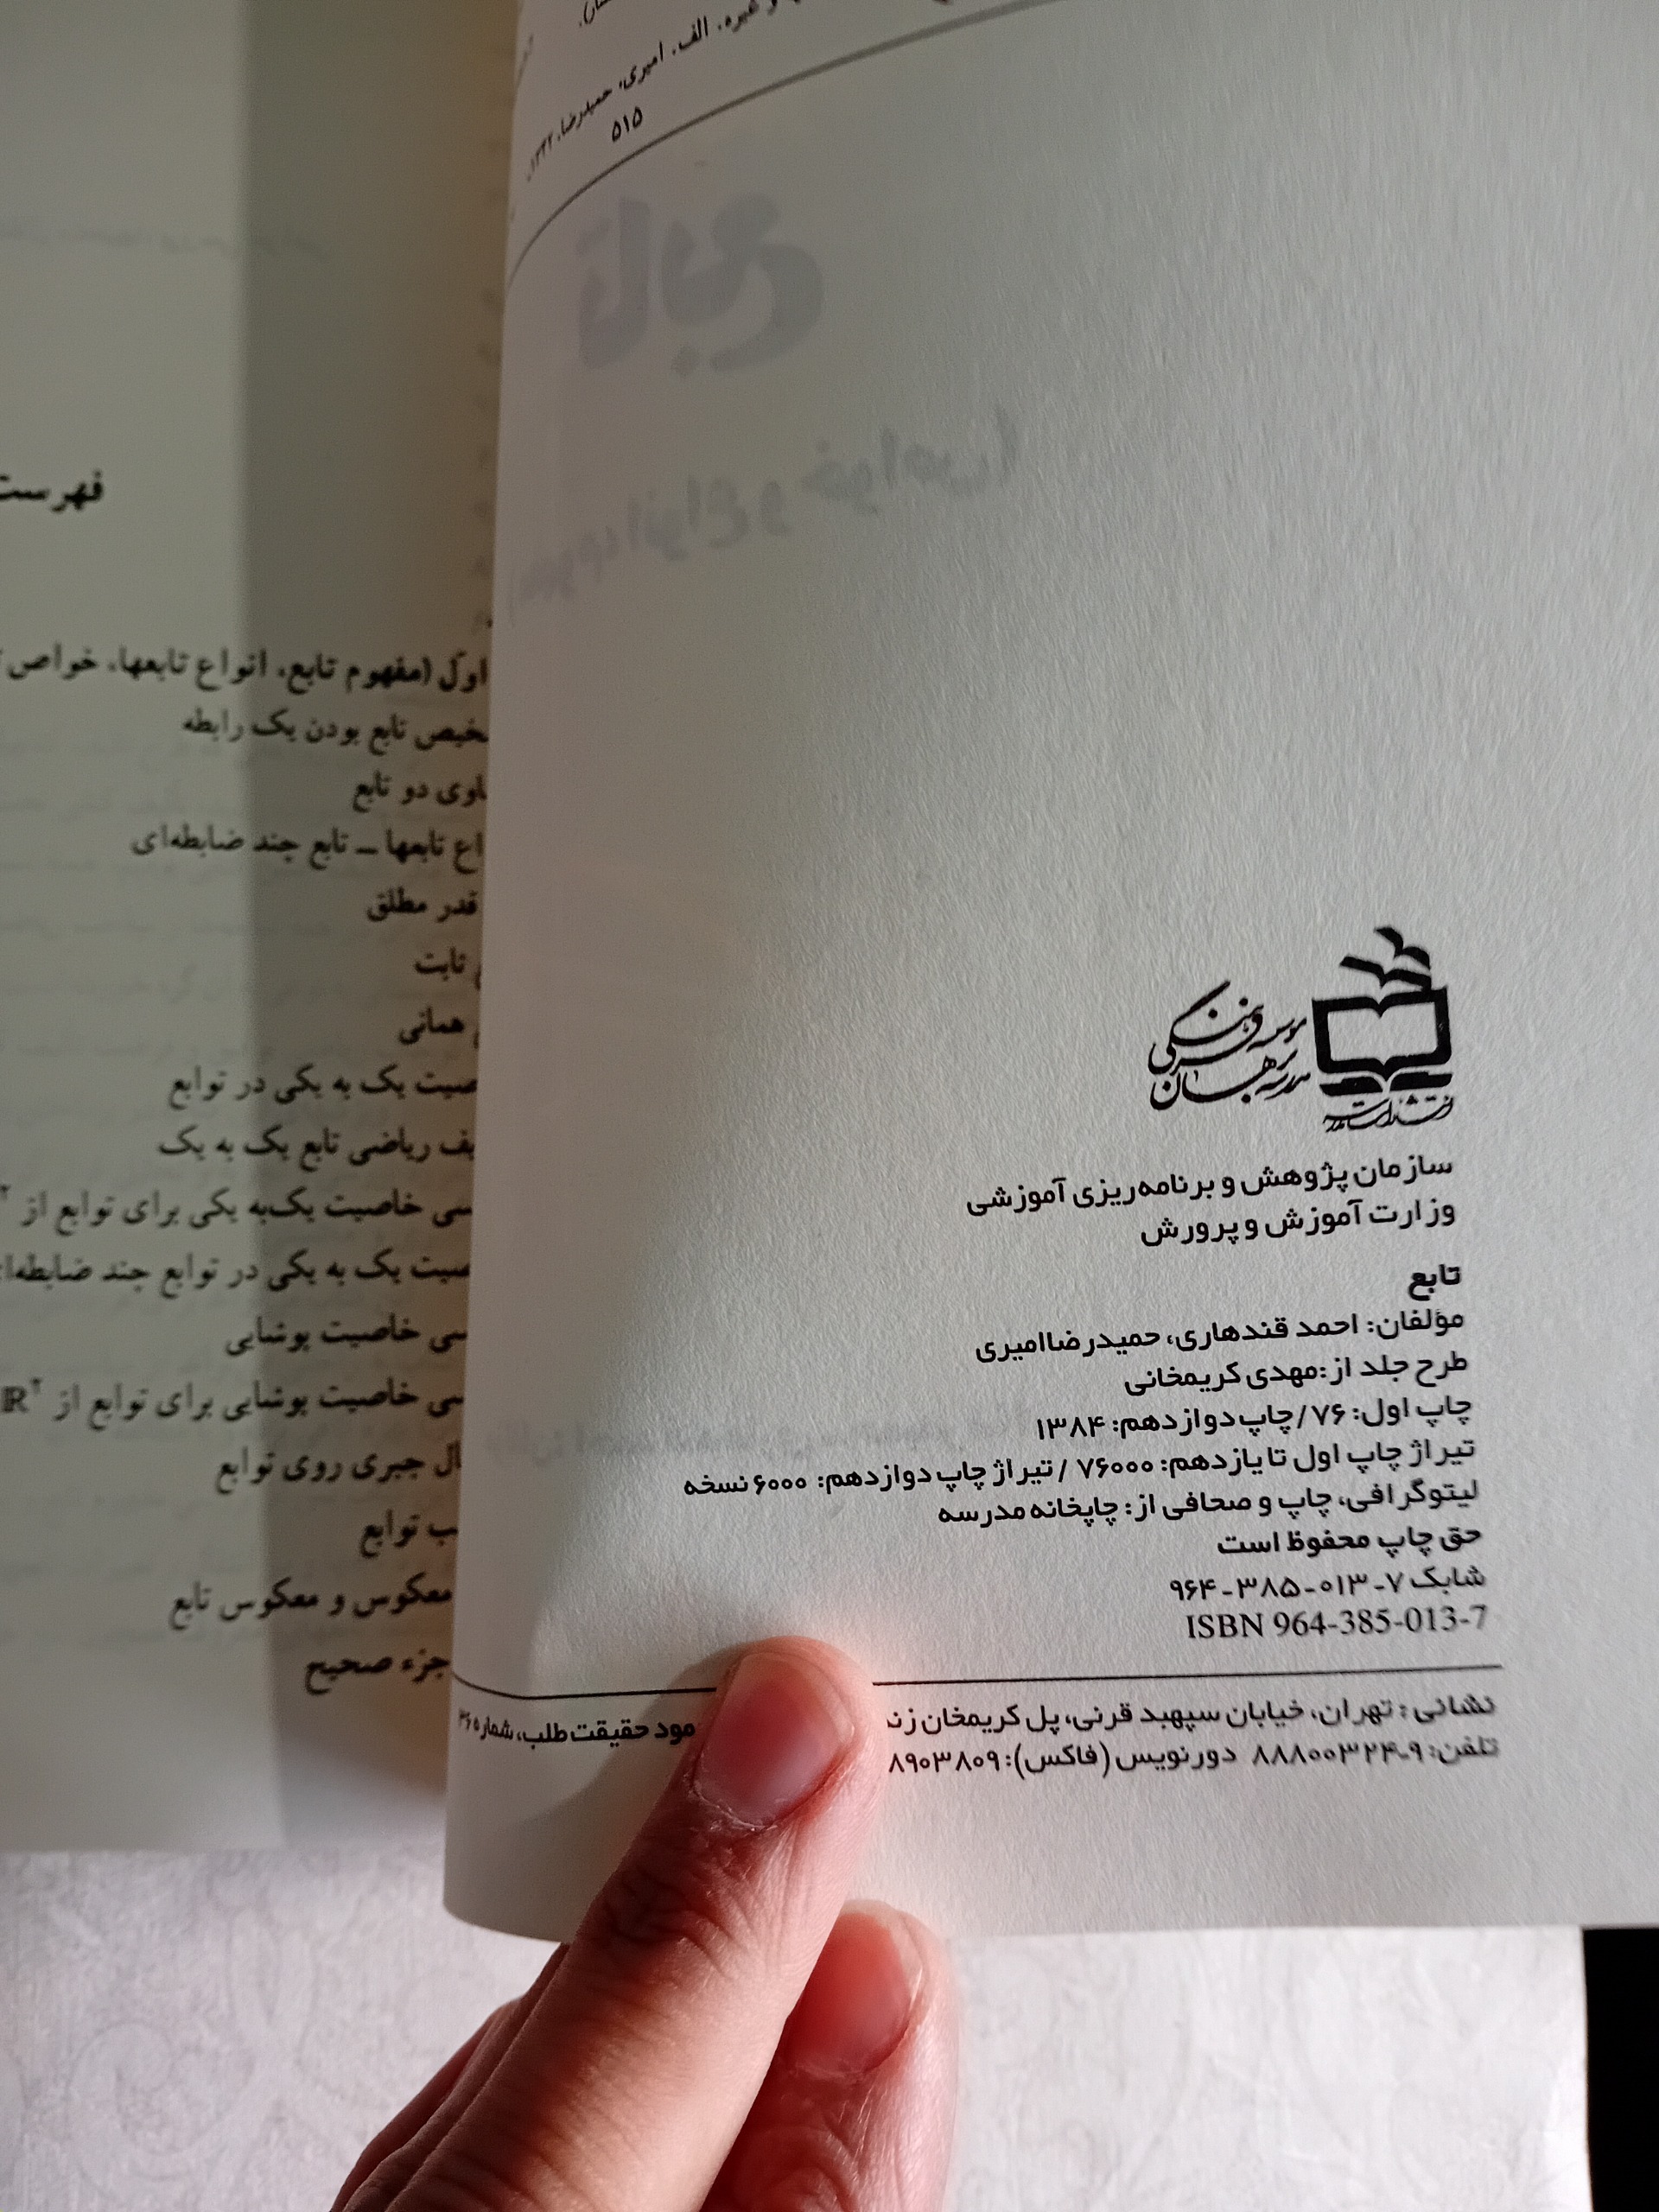 غیره. الف. امیری، حمیدرضا، ۱۳۴۲.
۵۱۵
مؤسسه فرهنگی
مدرسه برهان
انتشارات مدرسه
سازمان پژوهش و برنامه‌ریزی آموزشی
وزارت آموزش و پرورش
تابع
مؤلفان: احمد قندهاری، حمیدرضا امیری
طرح جلد از: مهدی کریمخانی
چاپ اول: ۷۶ / چاپ دوازدهم: ۱۳۸۴
تیراژ چاپ اول تا یازدهم: ۷۶۰۰۰ / تیراژ چاپ دوازدهم: ۶۰۰۰ نسخه
لیتوگرافی، چاپ و صحافی از: چاپخانه مدرسه
حق چاپ محفوظ است
شابک ۷-۰۱۳-۳۸۵-۹۶۴
ISBN 964-385-013-7
نشانی: تهران، خیابان سپهبد قرنی، پل کریمخان زند مود حقیقت طلب، شماره ۳۶
تلفن: ۹-۸۸۸۰۰۳۲۴ دورنویس (فاکس): ۸۹۰۳۸۰۹
فهرست
اول (مفهوم تابع، انواع تابعها، خواص
خیص تابع بودن یک رابطه
اوی دو تابع
اع تابعها ـ تابع چند ضابطه‌ای
قدر مطلق
ثابت
همانی
صیت یک به یکی در توابع
یف ریاضی تابع یک به یک
سی خاصیت یک‌به یکی برای توابع از
صیت یک به یکی در توابع چند ضابطه‌ا
سی خاصیت پوشایی
سی خاصیت پوشایی برای توابع از R۲
ال جبری روی توابع
ب توابع
معکوس و معکوس تابع
جزء صحیح